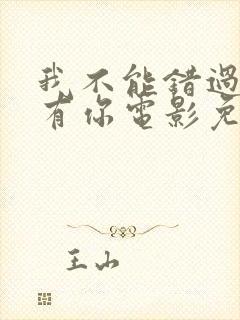 我不能錯過
有你電影免
王山